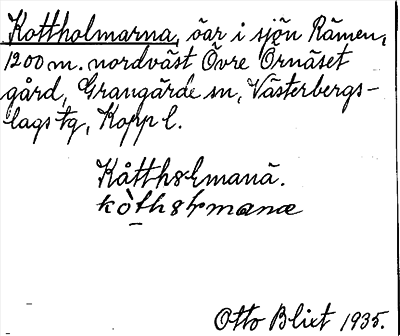 Kottholmarna, öar i sjön Rämen,
1200 m. nordväst Övre Örnäset
gård, Grangärde sn, Västerbergs-
lags tg, Kopp l.
Otto Blixt 1935.